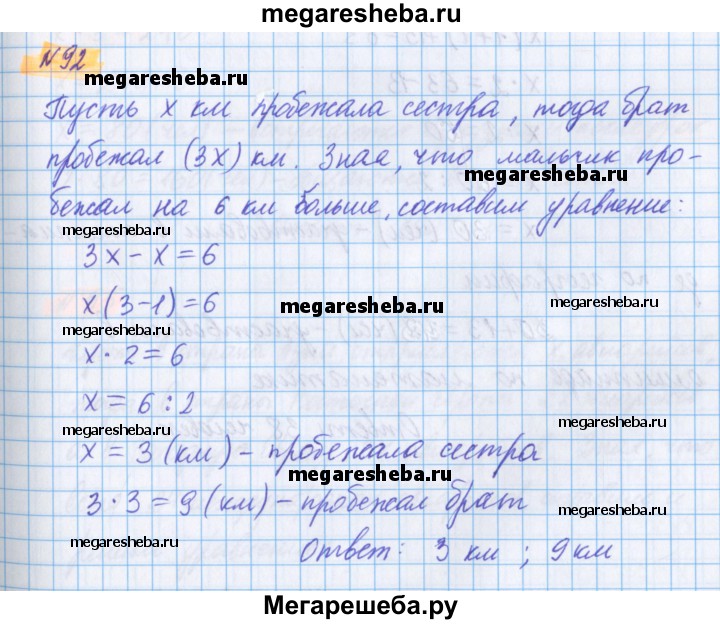 megaresheba.ru
№92
megaresheba.ru
Пусть x км пробежала сестра, тогда брат
пробежал (3x) км. Зная, что мальчик про-
megaresheba.ru
бежал на 6 км больше, составим уравнение:
megaresheba.ru
3x - x = 6
x(3-1) = 6
megaresheba.ru
megaresheba.ru
megaresheba.ru
x · 2 = 6
x = 6 : 2
megaresheba.ru
megaresheba.ru
x = 3 (км) - пробежала сестра
megaresheba.ru
3 · 3 = 9 (км) - пробежал брат
megaresheba.ru
megaresheba.ru
Ответ: 3 км ; 9 км
Мегарешеба.ру